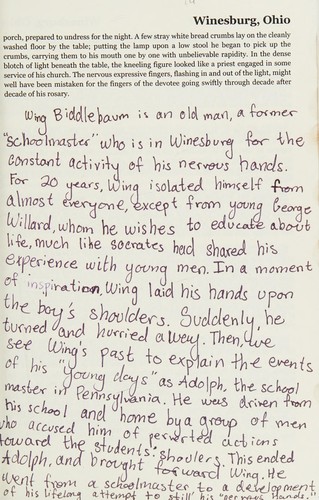 Winesburg, Ohio
porch, prepared to undress for the night. A few stray white bread crumbs lay on the cleanly
washed floor by the table; putting the lamp upon a low stool he began to pick up the
crumbs, carrying them to his mouth one by one with unbelievable rapidity. In the dense
blotch of light beneath the table, the kneeling figure looked like a priest engaged in some
service of his church. The nervous expressive fingers, flashing in and out of the light, might
well have been mistaken for the fingers of the devotee going swiftly through decade after
decade of his rosary.
Wing Biddlebaum is an old man, a former
"schoolmaster" who is in Winesburg for the
constant activity of his nervous hands.
For 20 years, Wing isolated himself from
almost everyone, except from young George
Willard, whom he wishes to educate about
life, much like Socrates had shared his
experience with young men. In a moment
of inspiration, Wing laid his hands upon
the boy's shoulders. Suddenly, he
turned and hurried away. Then, we
see Wing's past to explain the events
of his "young days" as Adolph, the school
master in Pennsylvania. He was driven from
his school and home by a group of men
who accused him of perverted actions
toward the students' shoulers. This ended
Adolph, and brought forward Wing. He
went from a schoolmaster to a development
of his lifelong attempt to still his "nervous hands."